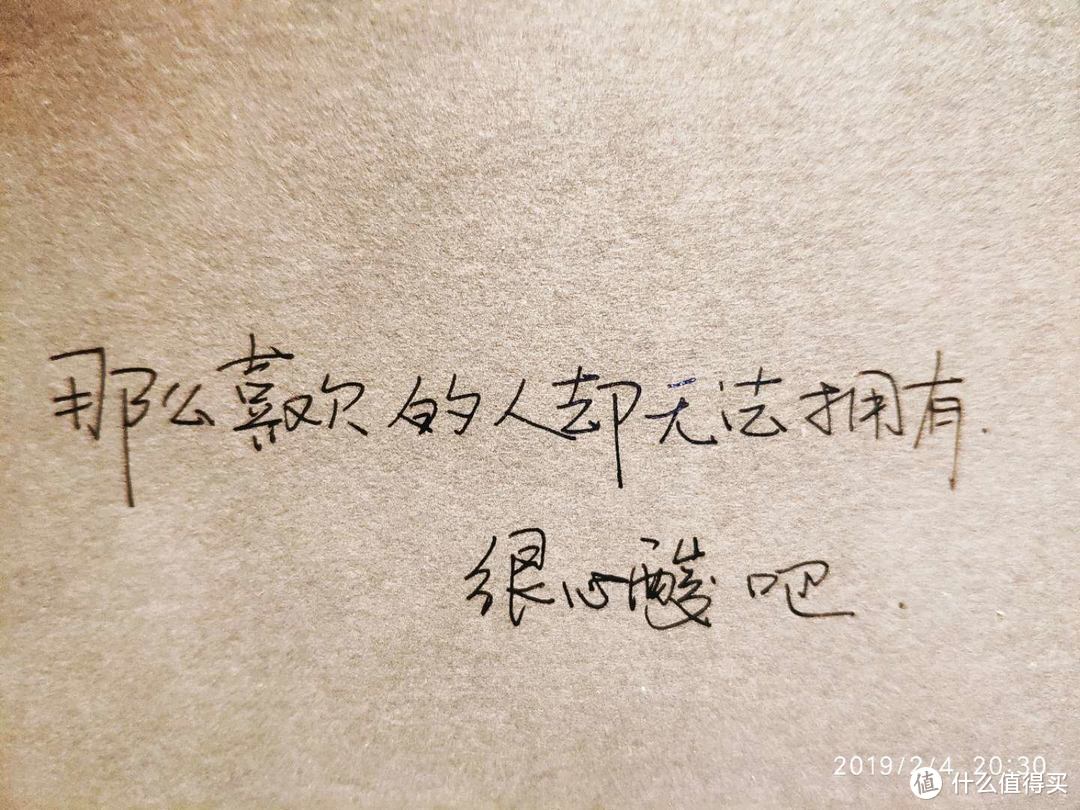 那么喜欢的人却无法拥有.
很心酸吧.
2019/2/4 20:30
值 什么值得买